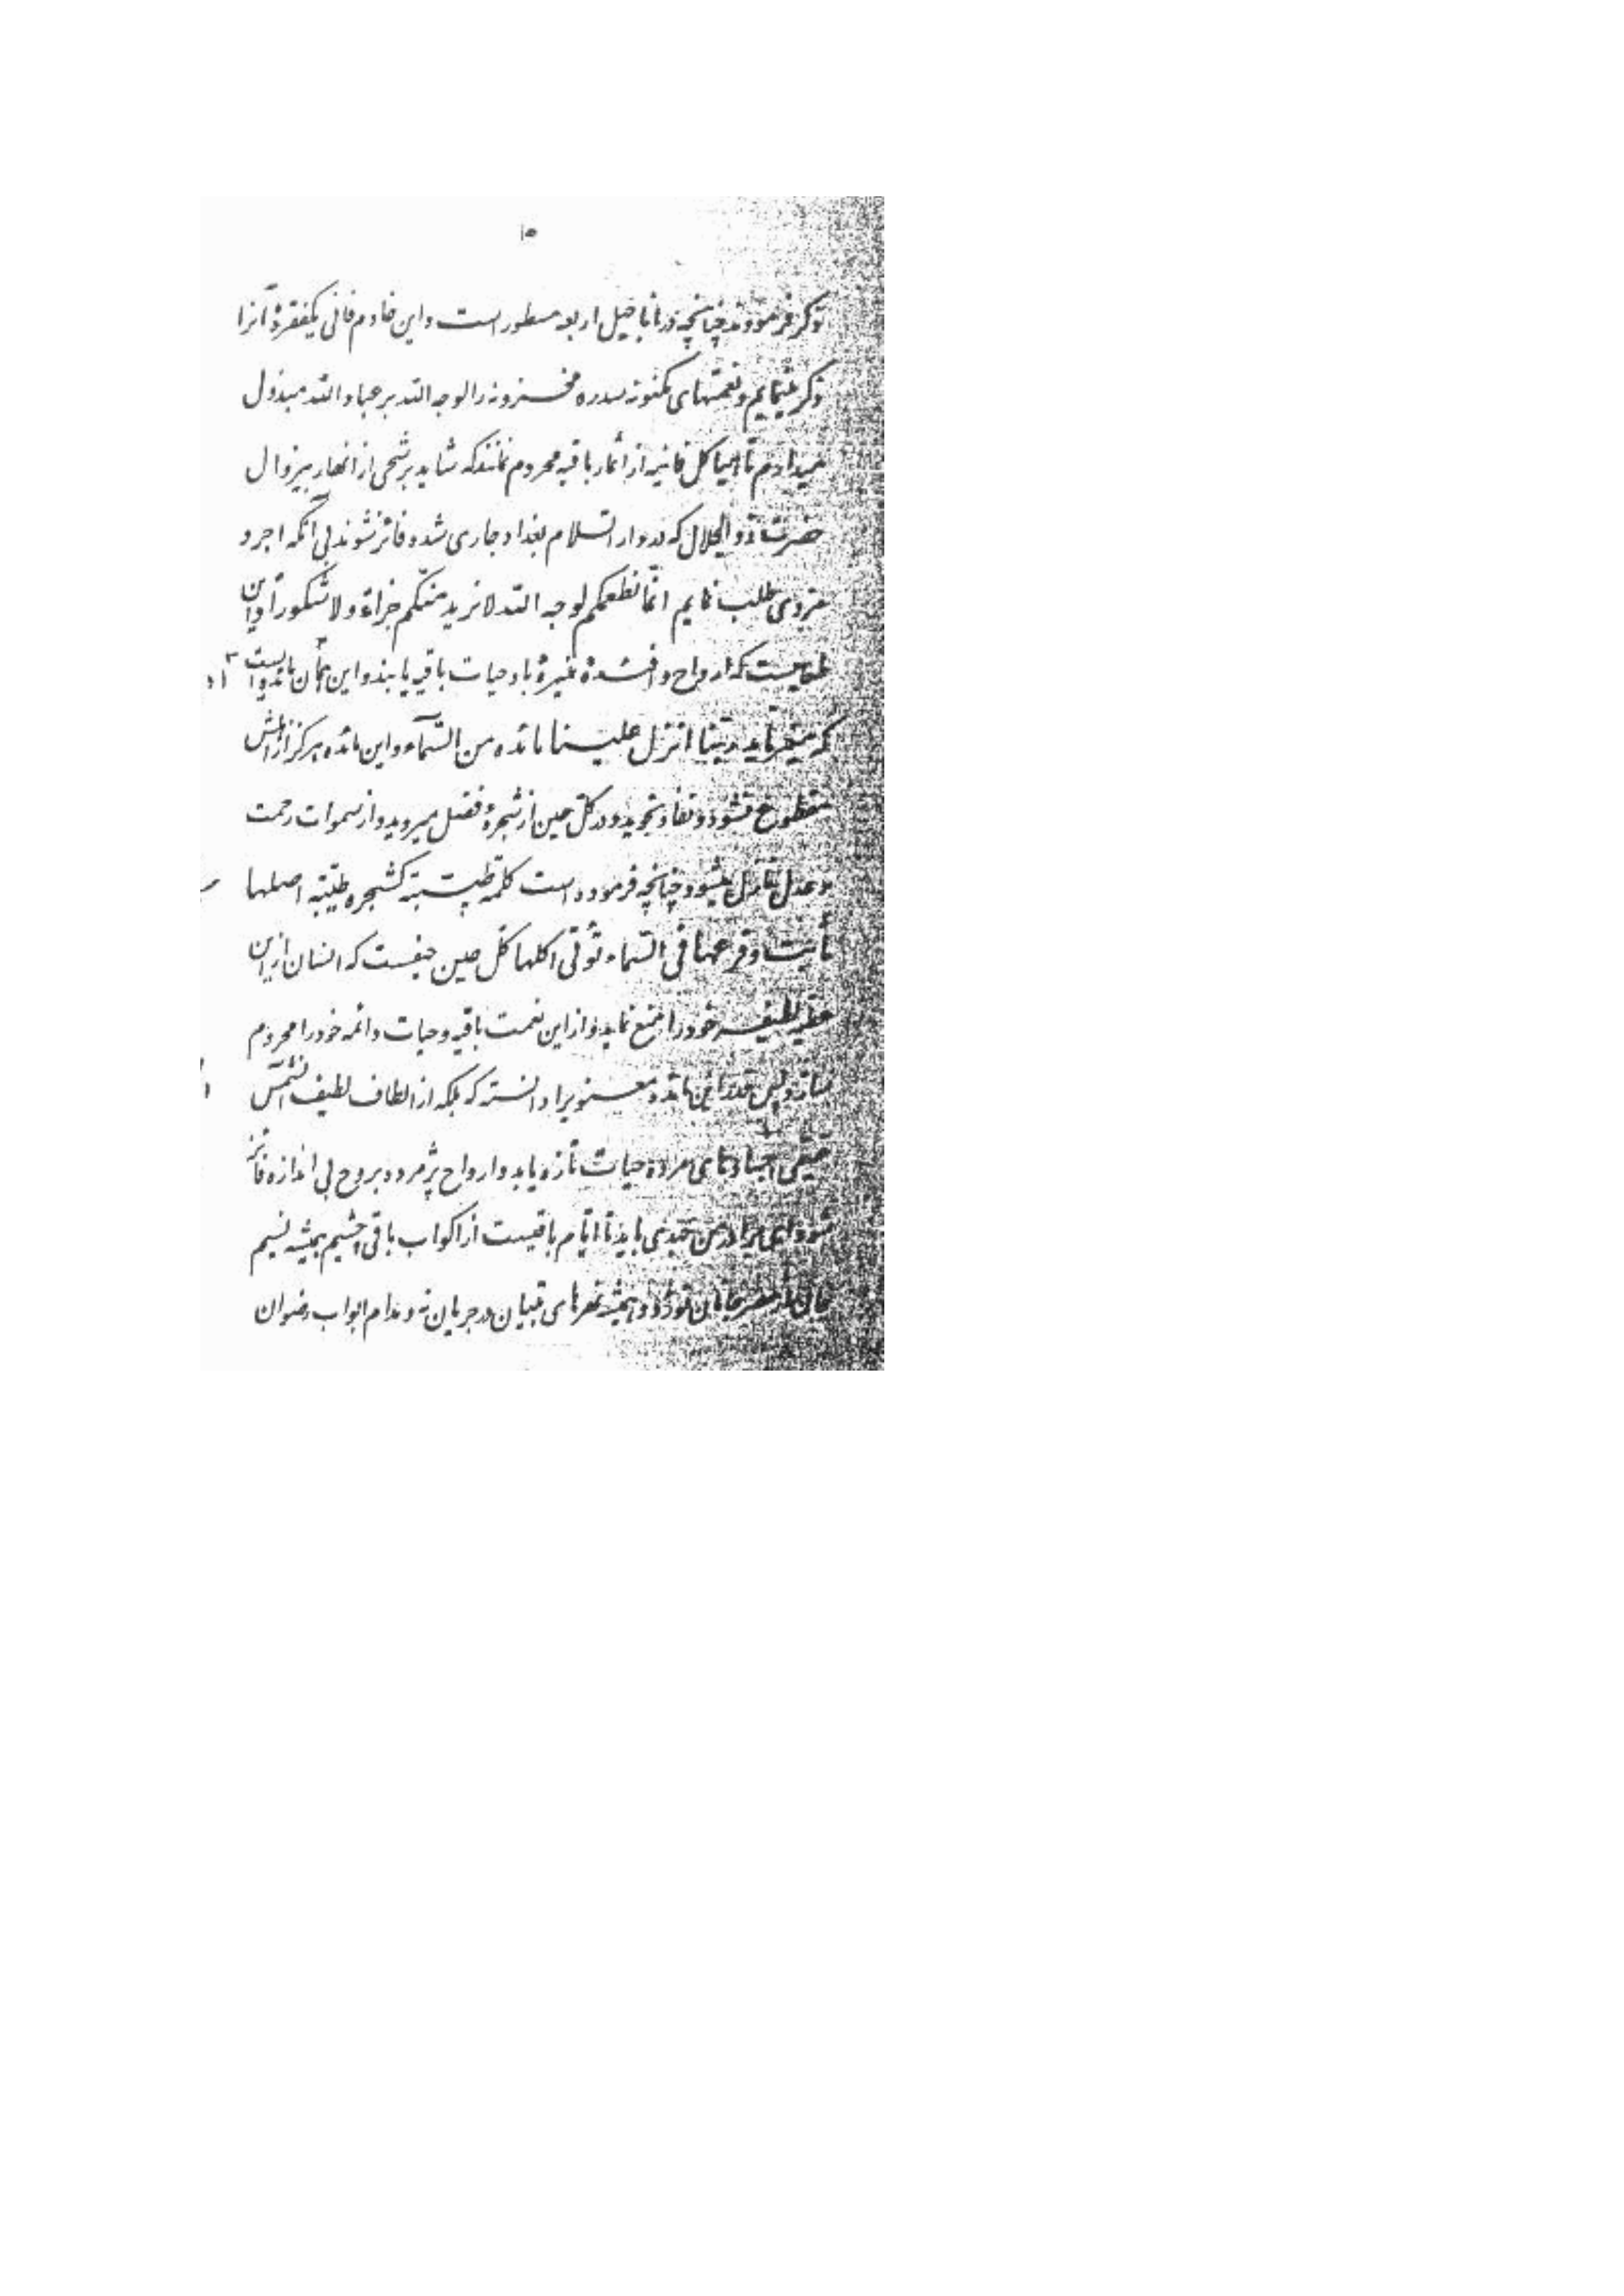 ١٥
ذکر فرمودند چنانچه در اناجیل اربعه مسطور است و این خادم فانی یکفقره آنرا
ذکر مینمایم و نعمتهای مکنونه سدره مخزونه را لوجه الله بر عباد الله مبذول
میدارم تا هیاکل فانیه از اثمار باقیه محروم نمانند که شاید برشحی از انهار بیزوال
حضرت ذو الجلال که در دار السلام بغداد جاری شده فائز شوند بی آنکه اجر و
مزدی طلب نمایم انّما نطعمکم لوجه الله لا نرید منکم جزاءً و لا شکوراً و این
طعامیست که ارواح و افئده منیره باو حیات باقیه یابند و این همان مائده ایست
که میفرماید ربّنا انزل علینا مائدة من السّمآء و این مائده هرگز از اهلش
مقطوع نشود و نفاد نجوید و در کلّ حین از شجره فضل میروید و از سموات رحمت
و عدل نازل میشود چنانچه فرموده است کلمة طیّبة کشجرة طیّبة اصلها
ثابت و فرعها فی السّماء تؤتی اکلها کلّ حین حیفست که انسان از این
عطیه لطیفه خود را منع نماید و از این نعمت باقیه و حیات دائمه خود را محروم
سازد پس قدر این مائده معنویرا دانسته که بلکه از الطاف لطیف آن شمس
حقیقی اجسادهای مرده حیات تازه یابد و ارواح پژمرده بروح بی اندازه فائز
شود ای برادر من جهدی باید تا ایّام باقیست از اکواب باقی چشیم همیشه نسیم
جان از مصر جانان نوزد و همیشه نهرهای تبیان در جریان نه و مدام ابواب رضوان